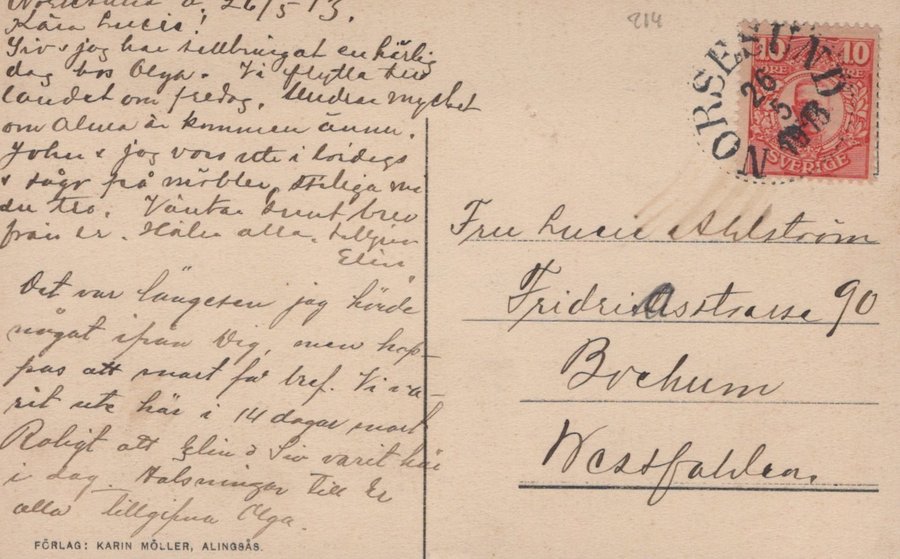 d. 26/5 13.
Kära Lucie!
Siv & jag har tillbringat en härlig
dag hos Olga. Vi flytta till
landet om fredag. Undrar mycket
om Alma är kommen ännu.
John & jag voro ute i lördags
& såg på möbler, stiliga må
du tro. Väntar snart brev
från er. Hälsa alla. Tillgivna
Elin
Det var längesen jag hörde
något ifrån Dig, men hop-
pas att snart få bref. Vi va-
rit ute här i 14 dagar snart
Roligt att Elin & Siv varit här
i dag. Halsningar till Er
alla tillgifna Olga.
FÖRLAG: KARIN MÖLLER, ALINGSÅS.
214
NORSESUND
26
5
1913
10 10
ÖRE ÖRE
SVERIGE
Fru Lucie Ahlström
90
Bochum
Westfahlen